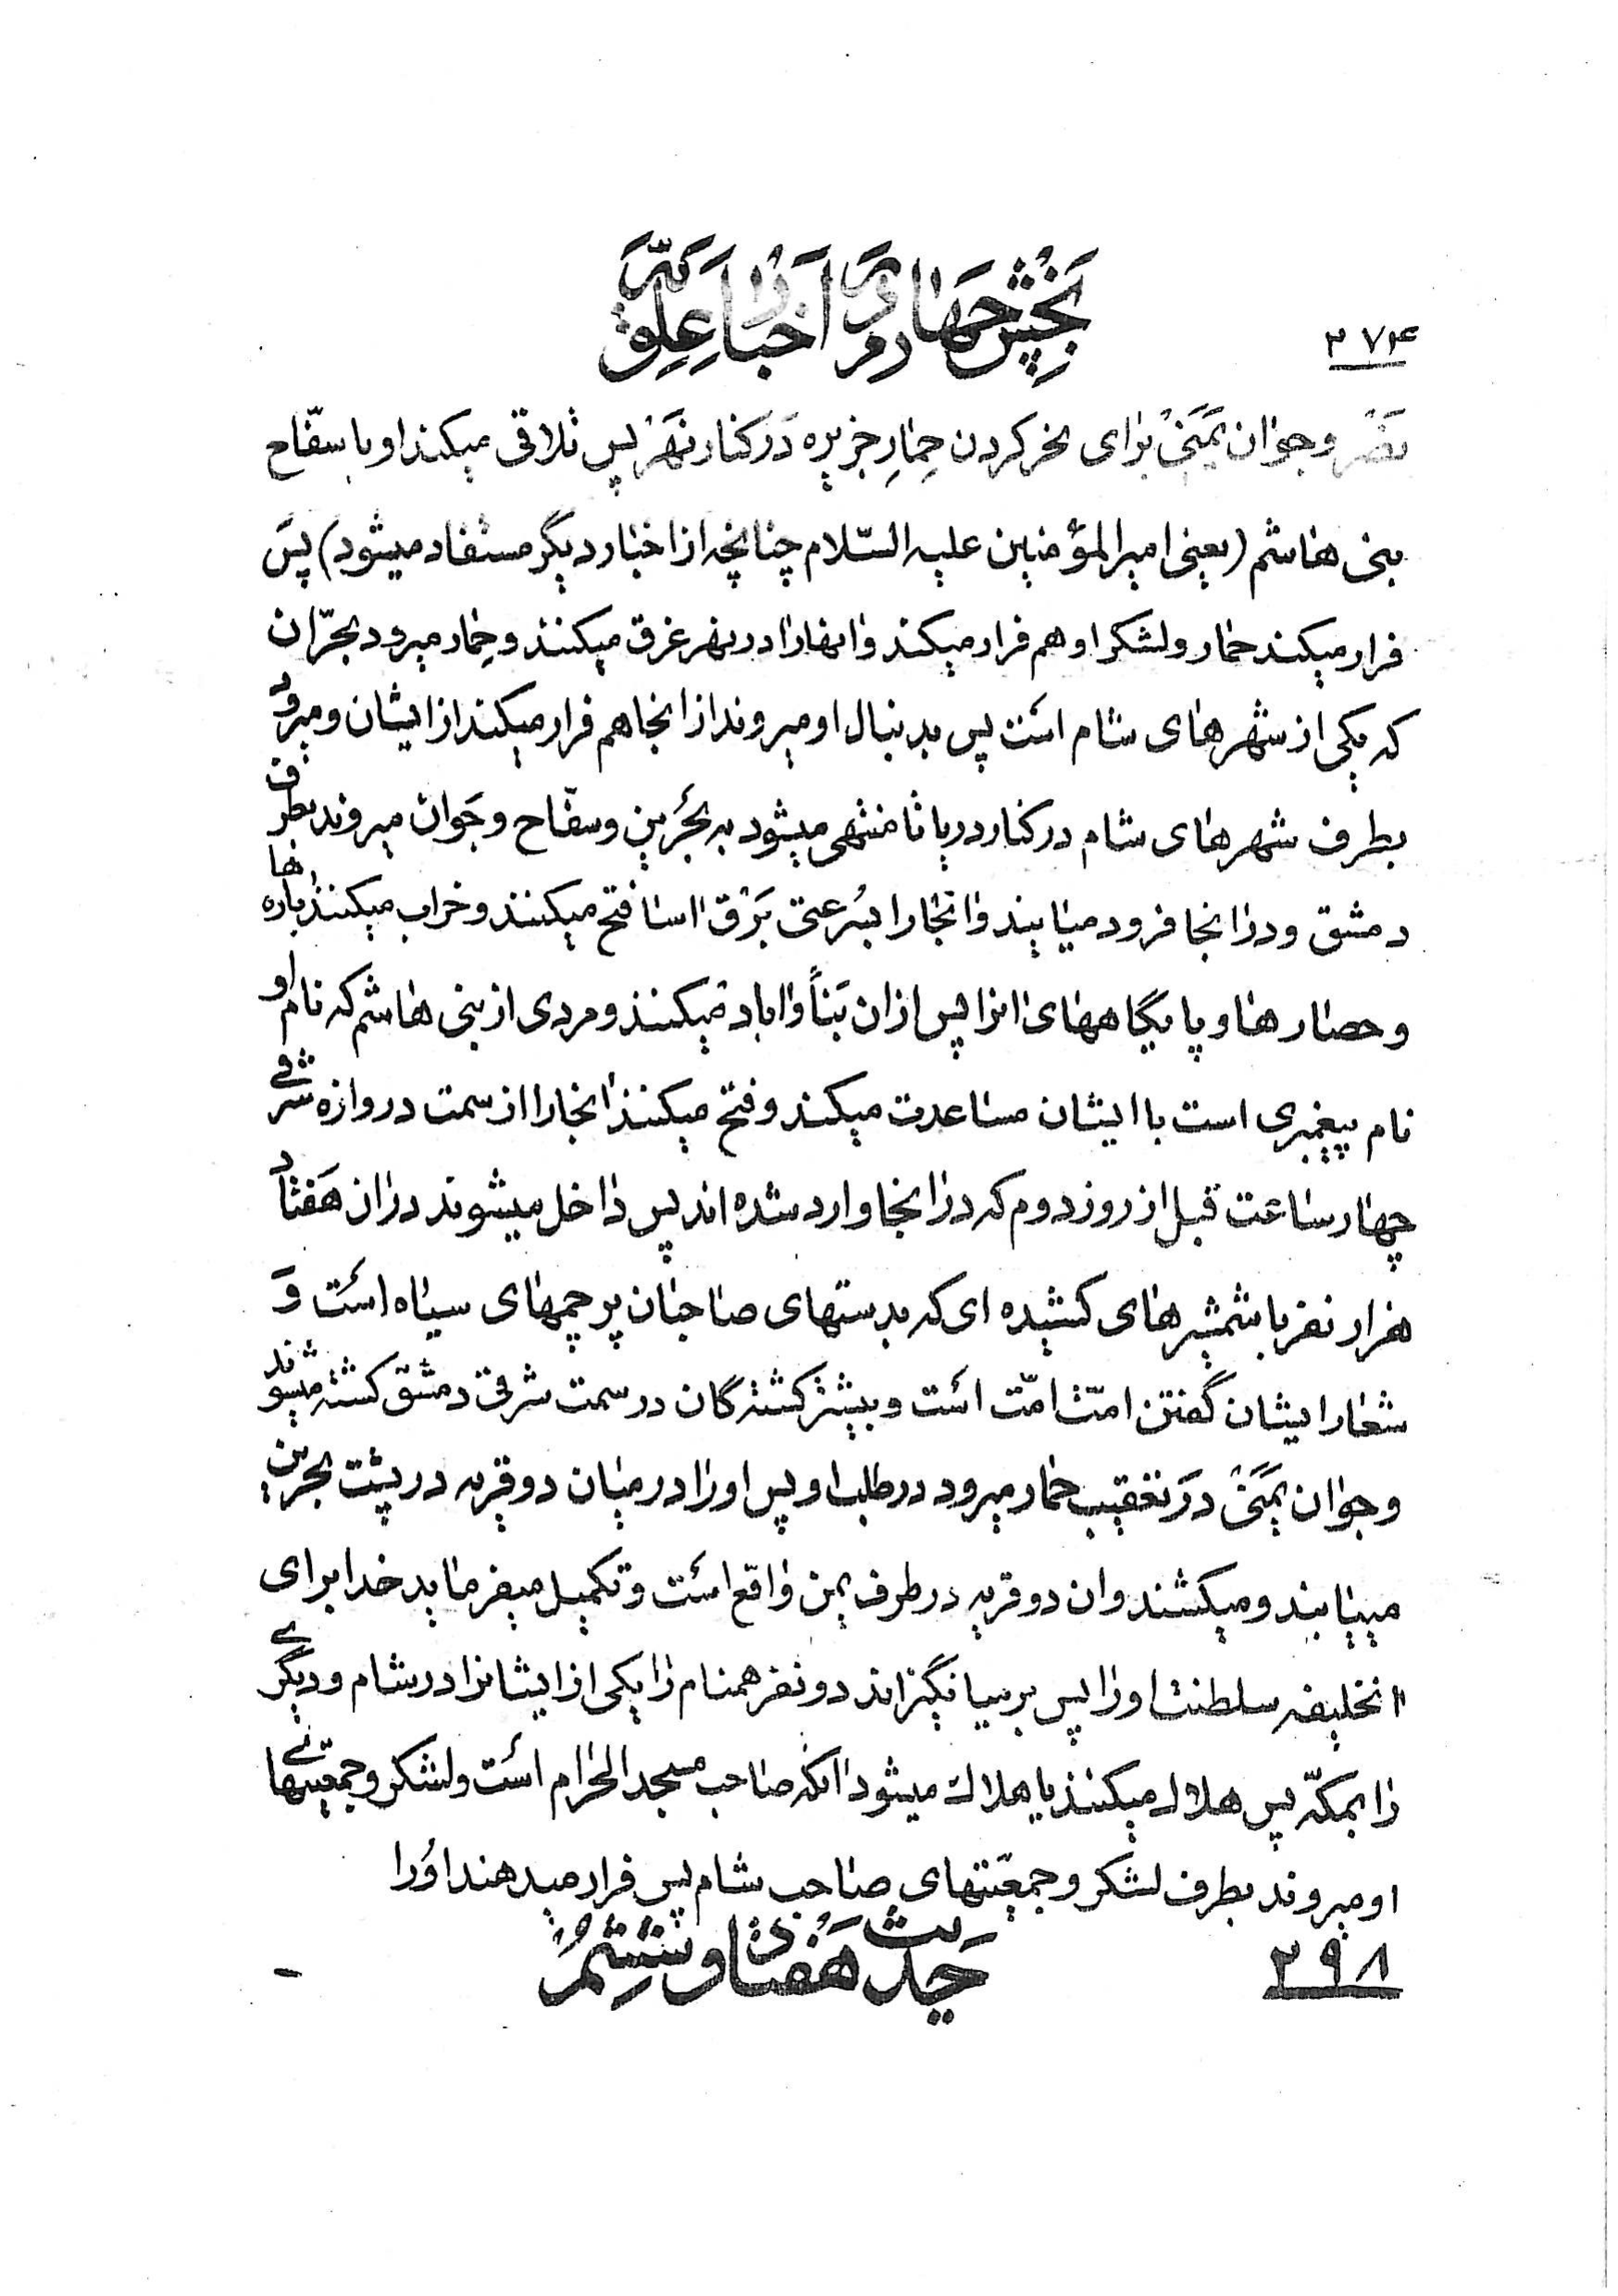 بخش چهارم در اخبار علویّه
۲۷۴
نصر و جوان یمنی برای نحر کردن حمار جزیره در کنار نهر پس تلاقی میکند او با سفّاح
بنی هاشم (یعنی امیرالمؤمنین علیه السّلام چنانچه از اخبار دیگر مستفاد میشود) پس
فرار میکند حمار و لشکر او هم فرار میکند و انها را در نهر غرق میکنند و حمار میرود بحرّان
که یکی از شهرهای شام است پس بدنبال او میروند از انجا هم فرار میکند از ایشان و میرود
بطرف شهرهای شام در کنار دریا تا منتهی میشود به بحرین و سفّاح و جوان میروند بطرف
دمشق و در انجا فرود میایند و انجا را بسرعتی برق اسا فتح میکنند و خراب میکنند بارهها
و حصارها و پایگاههای انرا پس از ان بنأ و اباد میکنند و مردی از بنی هاشم که نام او
نام پیغمبری است با ایشان مساعدت میکند و فتح میکنند انجا را از سمت دروازه شرقی
چهار ساعت قبل از روز دوم که در انجا وارد شده اند پس داخل میشوند در ان هفتاد
هزار نفر با شمشیرهای کشیده ای که بدستهای صاحبان پرچمهای سیاه است و
شعار ایشان گفتن امّت امّت است و بیشتر کشتهگان در سمت شرقی دمشق کشته میشوند
و جوان یمنی در تعقیب حمار میرود در طلب او پس او را در میان دو قریه در پشت بحرین
مییابند و میکشند و ان دو قریه در طرف یمن واقع است و تکمیل میفرماید خدا برای
انخلیفه سلطنت او را پس بر میانگیزاند دو نفر همنام را یکی از ایشانرا در شام و دیگری
را بمکّه پس هلاک میکنند یا هلاک میشود انکه صاحب مسجد الحرام است و لشکر و جمعیّتهای
او میروند بطرف لشکر و جمعیّتهای صاحب شام پس فرار میدهند او را
حدیث هفتاد و ششم
۲۹۸